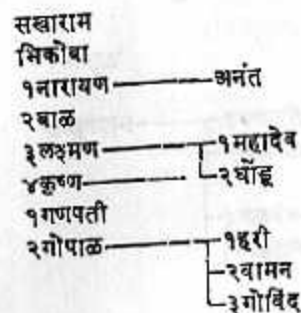 सखाराम
भिकोबा
१नारायण अनंत
२बाळ
३लक्ष्मण १महादेव
४कृष्ण २घोंडू
१गणपती
२गोपाळ १हरी
२वामन
३गोविंद